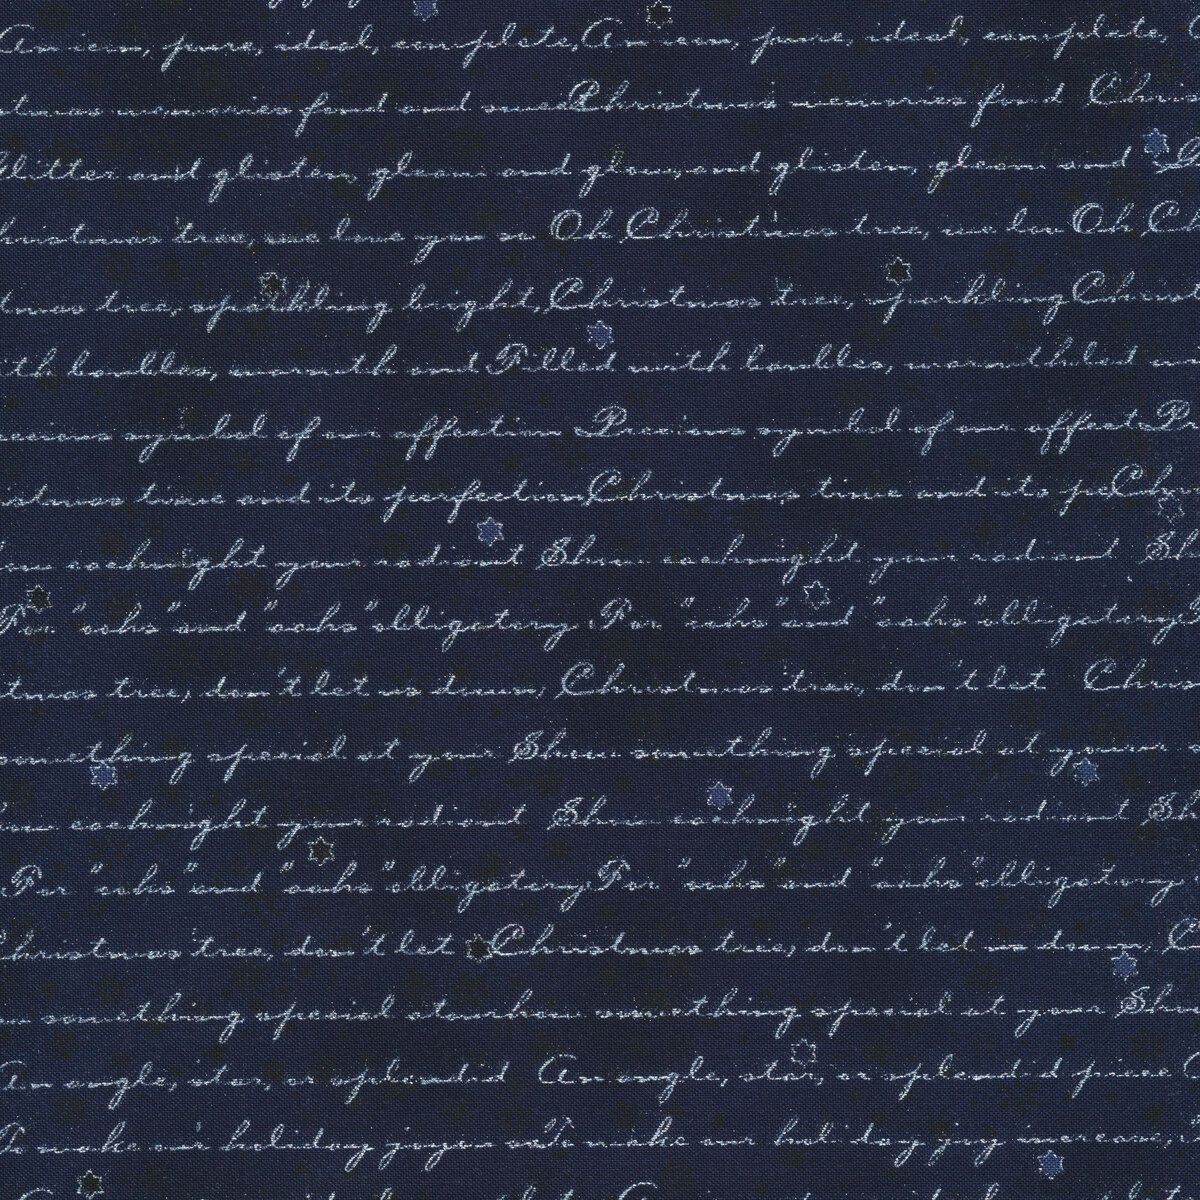 An icon, pure, ideal, complete, An icon, pure, ideal, complete,
tmas memories fond and swee Christmas memories fond Chris
Glitter and glisten, gleam and glow, and glisten, gleam and
hristmas tree, we love you so Oh, Christmas tree, we lov Oh, Ch
tmas tree, sparkling bright, Christmas tree, sparkling Christ
ith baubles, warmth and Filled with baubles, warmth
ecious symbol of our affection Precious symbol of our affect Pr
istmas time and its perfection Christmas time and its pe Chri
ow each night your radiant Show each night your radiant Sh
For "oohs" and "aahs" obligatory For "oohs" and "aahs" obligatory
tmas tree, don't let us down, Christmas tree, don't let Chris
something special at your Show something special at your
ow each night your radiant Show each night your radiant Sh
For "oohs" and "aahs" obligatory For "oohs" and "aahs" obligatory
Christmas tree, don't let Christmas tree, don't let us down, C
something special at our something special at your Sho
An angle, star, or splendid An angle, star, or splendid piece
To make our holiday joy To make our holiday joy increase,